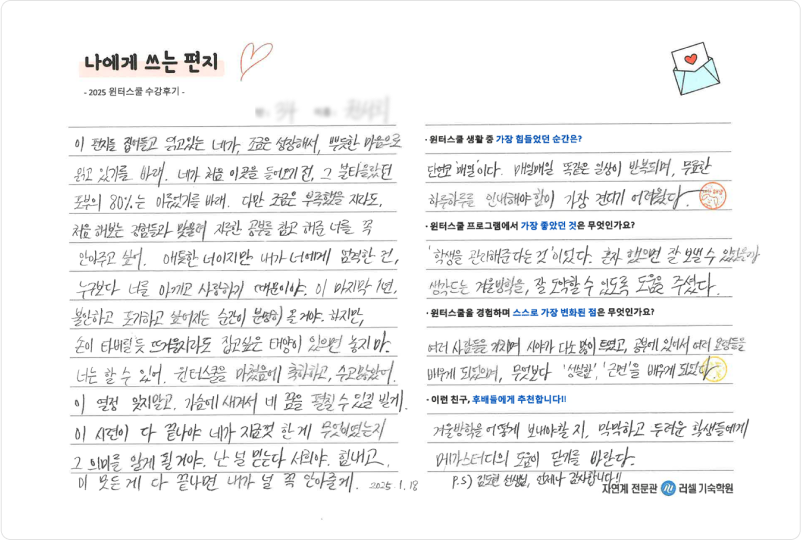 나에게 쓰는 편지
- 2025 윈터스쿨 수강후기 -
이 편지를 집어들고 읽고있는 네가, 조금은 성장해서, 뿌듯한 마음으로
읽고 있기를 바래. 네가 처음 이곳을 들어오기 전, 그 불타올랐던
포부의 80%는 이루었기를 바래. 다만 조금은 부족했을 지라도,
처음 해보는 경험들과 맞물려 지루한 공부를 참고 해준 너를 꼭
안아주고 싶어. 애틋한 너이지만 내가 너에게 엄격한 건,
누구보다 너를 아끼고 사랑하기 때문이야. 이 마지막 1년,
불안하고 포기하고 싶어지는 순간이 분명히 올 거야. 하지만,
손이 타버릴듯 뜨거울지라도 잡고싶은 태양이 있으면 놓지마.
너는 할 수 있어. 윈터스쿨을 마쳤음에 축하하고, 수고많았어.
이 열정 잊지말고, 가슴에 새겨서 네 꿈을 펼칠 수 있길 빌게.
이 시련이 다 끝나야 네가 지금껏 한 게 무엇이었는지
그 의미를 알게 될 거야. 난 널 믿는다 서희야. 힘내고,
이 모든 게 다 끝나면 내가 널 꼭 안아줄게. 2025.1.18
· 윈터스쿨 생활 중 가장 힘들었던 순간은?
단연코 '매일'이다. 매일매일 똑같은 일상이 반복되며, 무료한
하루하루를 인내해야 함이 가장 견디기 어려웠다.
· 윈터스쿨 프로그램에서 가장 좋았던 것은 무엇인가요?
'학생을 관리해준다는 것'이었다. 혼자 했으면 잘 보낼 수 있었을까
생각드는 겨울방학을, 잘 도약할 수 있도록 도움을 주셨다.
· 윈터스쿨을 경험하며 스스로 가장 변화된 점은 무엇인가요?
여러 사람들을 거치며 시야가 다소 많이 트였고, 공부에 있어서 여러 요령들을
배우게 되었으며, 무엇보다 '성실함', '근면'을 배우게 되었다.
· 이런 친구, 후배들에게 추천합니다!!
겨울방학을 어떻게 보내야할 지, 막막하고 두려운 학생들에게
메가스터디의 도움이 닿기를 바란다.
P.S) 김도현 선생님, 언제나 감사합니다!!
자연계 전문관 러셀 기숙학원